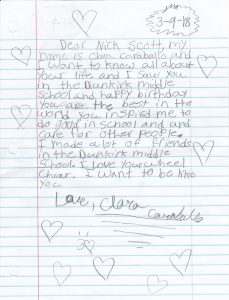 3-9-18
Dear Nick Scott, my
name is Clara Caraballo and
I want to know all about
your life and I saw you
in the Dunkirk middle
school and happy birthday
you are the best in the
world you inspired me to
do good in school and and
care for other people.
I made a lot of friends
in the Dunkirk middle
School. I Love your wheel
Chiar. I want to be like
you
Love, Clara
Caraballo